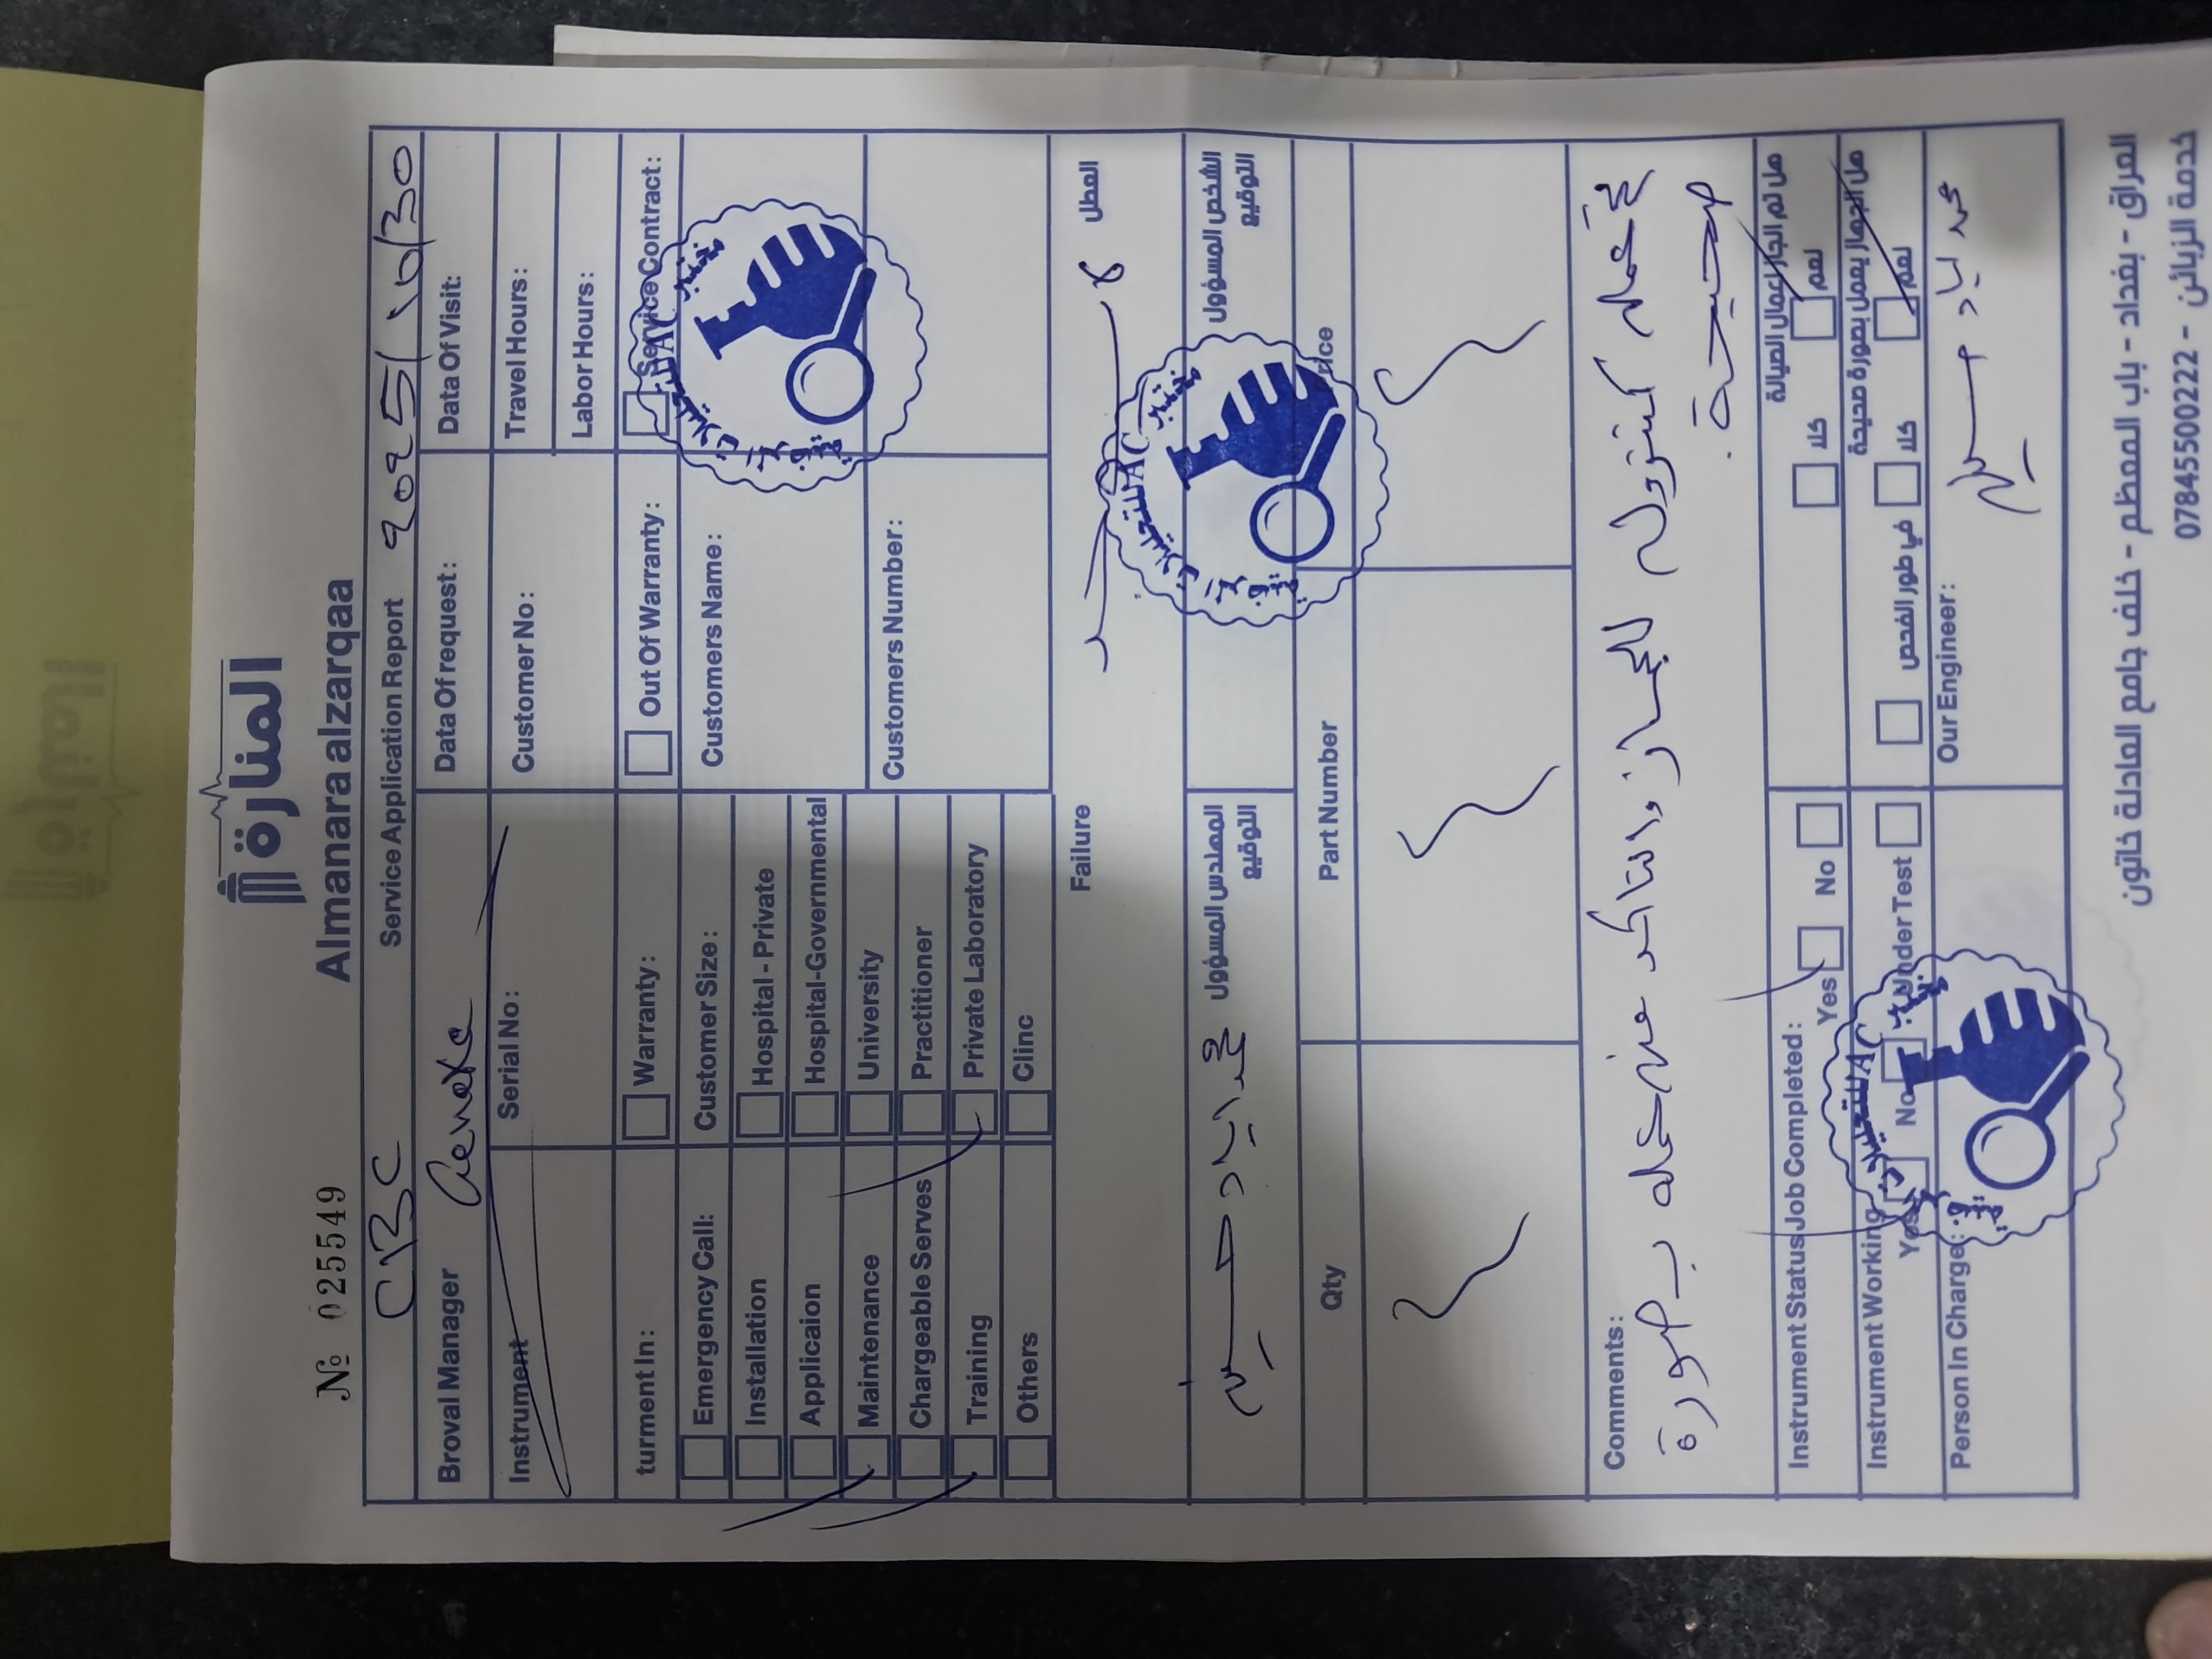 المنارة
Almanara alzarqaa
№ 025549
CBC Service Application Report 2025/10/30
Broval Manager
Data Of request:
Data Of Visit:
Instrument
Serial No:
Customer No:
Travel Hours:
Labor Hours:
turnment In:
Warranty:
Out Of Warranty:
Service Contract:
Emergency Call:
Customer Size:
Customers Name:
Installation
Hospital - Private
Applicaion
Hospital-Governmental
Maintenance
University
Customers Number:
Chargeable Serves
Practitioner
Training
Private Laboratory
Others
Clinc
Failure
العطل
محمد اياد حسين
المهندس المسؤول
التوقيع
الشخص المسؤول
التوقيع
Qty
Part Number
Price
Comments:
تم عمل كنترول للجهاز والتاكد من عمله بصورة
صحيحة.
Instrument Status Job Completed:
Yes
No
هل تم انجاز اعمال الصيانة
كلا
نعم
Instrument Working
Yes
No
Under Test
هل الجهاز يعمل بصورة صحيحة
في طور الفحص
كلا
نعم
Person In Charge:
Our Engineer:
محمد اياد حسين
العراق - بغداد - باب المعظم - خلف جامع العادلة خاتون
خدمة الزبائن - 07845500222